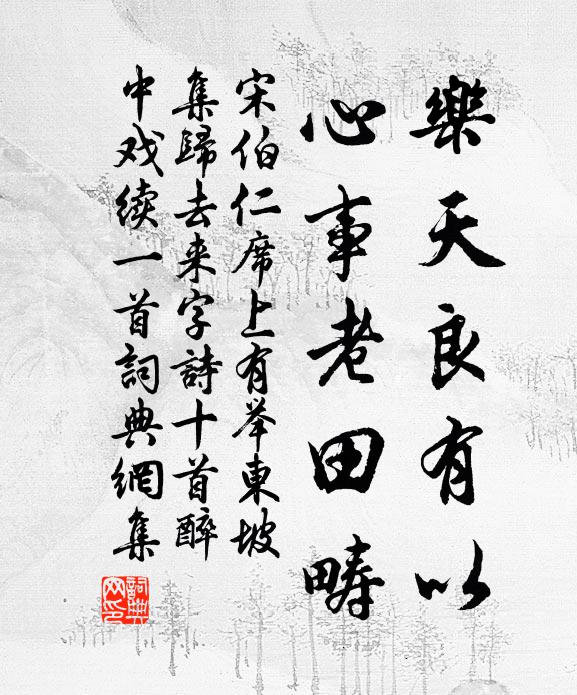 樂天良有以
心事老田疇
宋伯仁席上有举東坡
集歸去来字詩十首醉
中戏续一首詞典網集
詞典网印